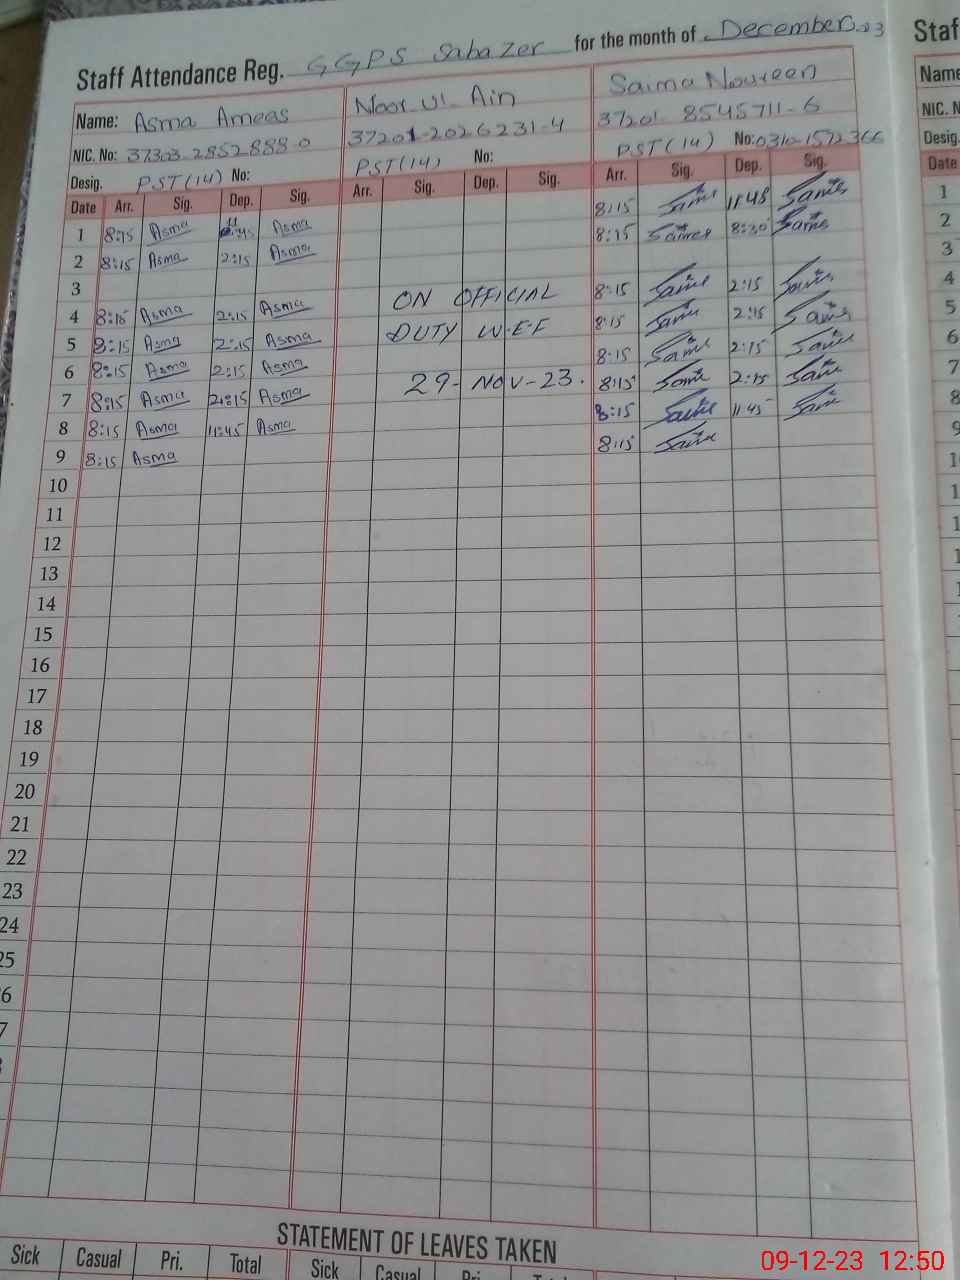 Staff Attendance Reg. GGPS Sabazer for the month of December 23
Name: Asma Ameas Noor Ul Ain Saima Noureen
NIC. No: 37303-2852888-0 37201-2026231-4 37201-8545711-6
Desig. PST(14) No: PST(14) No: PST(14) No: 0310-1572366
Date Arr. Sig. Dep. Sig. Arr. Sig. Dep. Sig. Arr. Sig. Dep. Sig.
1 8:15 Asma 11:45 Asma 8:15 11:45
2 8:15 Asma 2:15 Asma 8:15 8:30
3
4 8:15 Asma 2:15 Asma ON OFFICIAL 8:15 2:15
5 8:15 Asma 2:15 Asma DUTY W-E-F 8:15 2:15
6 8:15 Asma 2:15 Asma 8:15 2:15
7 8:15 Asma 2:15 Asma 29-NOV-23. 8:15 2:15
8 8:15 Asma 11:45 Asma 8:15 11:45
9 8:15 Asma 8:15
10
11
12
13
14
15
16
17
18
19
20
21
22
23
24
25
STATEMENT OF LEAVES TAKEN
Sick Casual Pri. Total Sick Casual Pri.
Staf
Name
NIC. N
Desig.
Date
1
2
3
4
5
6
7
8
9
09-12-23 12:50